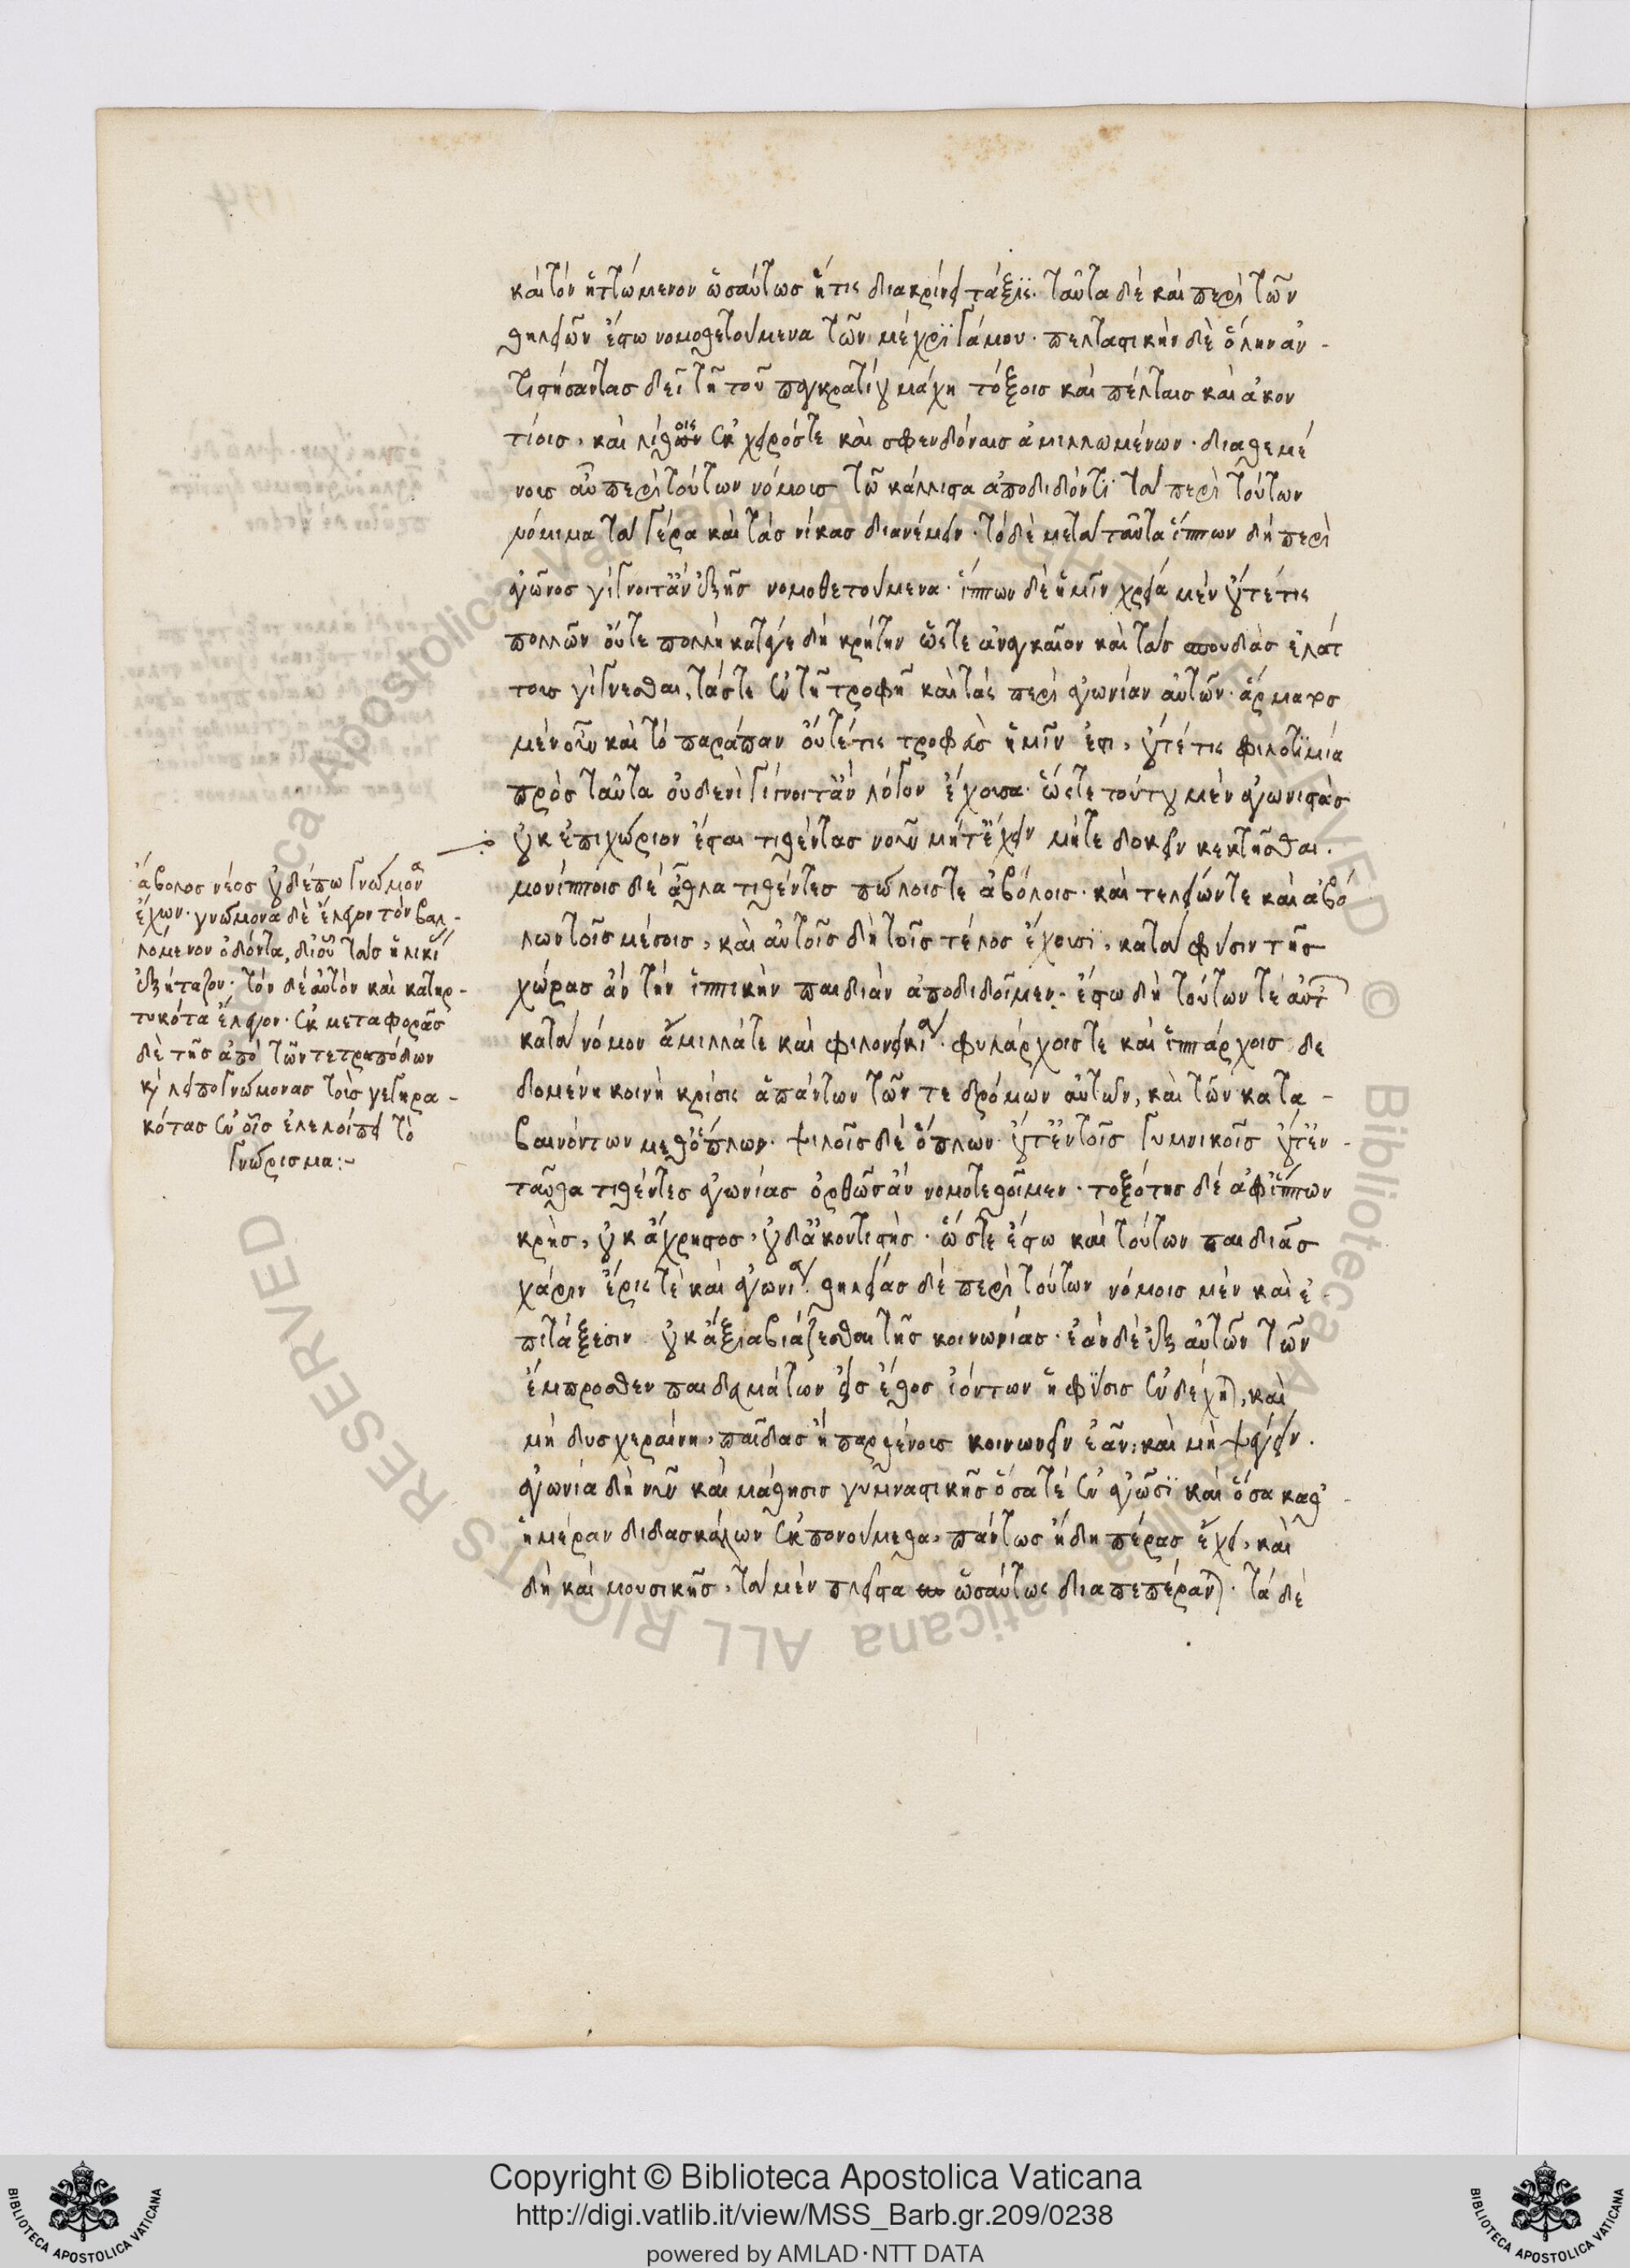 καὶ τὸν ἡττώμενον ὡσαύτως ἥτις διακρίνει τάξις. ταῦτα δὲ καὶ περὶ τῶν
θηλειῶν ἔστω νομοθετούμενα τῶν μέχρι γάμου. πελταστικὴν δὲ ὅλην ἀν-
τιστήσαντας δεῖ τῇ τοῦ παγκρατίου μάχῃ τόξοις καὶ πέλταις καὶ ἀκον
τίοις, καὶ λίθων οις ἐκ χειρός τε καὶ σφενδόναις ἁμιλλωμένων. διαθεμέ
νοις αὖ περὶ τούτων νόμοις τῷ κάλλιστα ἀποδιδόντι τὰ περὶ τούτων
νόμιμα τὰ γέρα καὶ τὰς νίκας διανέμειν. τὸ δὲ μετὰ ταῦτα ἵππων δὴ περὶ
ἀγῶνος γίγνοιτ' ἂν ἑξῆς νομοθετούμενα. ἵππων δὲ ἡμῖν χρεία μὲν οὔτέ τις
πολλῶν οὔτε πολλὴ κατάγε δὴ κρήτην ὥστε ἀναγκαῖον καὶ τὰς σπουδὰς ἐλάτ
τους γίγνεσθαι, τάς τε ἐν τῇ τροφῇ καὶ τὰς περὶ ἀγωνίαν αὐτῶν. ἅρματος
μὲν οὖν καὶ τὸ παράπαν οὔτέ τις τροφεὺς ἡμῖν ἐστι, οὔτέ τις φιλοτιμία
πρὸς ταῦτα οὐδενὶ γίγνοιτ' ἂν λόγον ἔχουσα. ὥστε τούτου μὲν ἀγωνιστὰς
οὐκ ἐπιχώριον ἔσται τιθέντας νοῦν μήτ' ἔχειν μήτε δοκεῖν κεκτῆσθαι.
μονίπποις δὲ ἆθλα τιθέντες πώλοις τε ἀβόλοις. καὶ τελείων τε καὶ ἀβό
λων τοῖς μέσοις, καὶ αὐτοῖς δὴ τοῖς τέλος ἔχουσι, κατὰ φύσιν τῆς
χώρας ἂν τὴν ἱππικὴν παιδιὰν ἀποδιδοῖμεν. ἔστω δὴ τούτων τε αὐτ
κατὰ νόμον ἅμιλλά τε καὶ φιλονεικία. φυλάρχοις τε καὶ ἱππάρχοις δε
δομένη κοινὴ κρίσις ἁπάντων τῶν τε δρόμων αὐτῶν, καὶ τῶν κατα-
βαινόντων μεθ' ὅπλων. ψιλοῖς δὲ ὅπλων οὔτ' ἐν τοῖς γυμνικοῖς οὔτ' ἐν-
ταῦθα τιθέντες ἀγωνίας ὀρθῶς ἂν νομοτεθοῖμεν. τοξότης δὲ ἀφ' ἵππων
κρὴς, οὐκ ἄχρηστος, οὐδ' ἀκοντιστὴς. ὥστε ἔστω καὶ τούτων παιδιᾶς
χάριν ἔρις τὲ καὶ ἀγωνία. θηλείας δὲ περὶ τούτων νόμοις μὲν καὶ ἐ-
πιτάξεσιν οὐκ ἄξια βιάζεσθαι τῆς κοινωνίας. ἐὰν δὲ ἐξ αὐτῶν τῶν
ἔμπροσθεν παιδευμάτων εἰς ἔθος ἰόντων ἡ φύσις ἐνδέχηται, καὶ
μὴ δυσχεραίνῃ, παῖδας ἢ παρθένους κοινωνεῖν ἐᾶν, καὶ μὴ ψέγειν.
ἀγωνία δὴ νῦν καὶ μάθησις γυμναστικῆς ὅσα τὲ ἐν ἀγῶσι καὶ ὅσα καθ' -
ἡμέραν διδασκάλων ἐκπονούμεθα, πάντως ἤδη πέρας ἔχει, καὶ
δὴ καὶ μουσικῆς, τὰ μὲν πλεῖστα ὡσαύτως διαπεπέρανται. τὰ δὲ
ἄβολος νέος οὐδέπω γνώμονα
ἔχων. γνώμονα δὲ ἔλεγον τὸν βαλ-
λόμενον ὀδόντα, δι' οὗ τὰς ἡλικί
ἐξήταζον. τὸν δὲ αὐτὸν καὶ κατηρ-
τυκότα ἔλεγον. ἐκ μεταφορᾶς
δὲ τῆς ἀπὸ τῶν τετραπόδων
καὶ λειπογνώμονας τοὺς γεγηρα-
κότας ἐν οἷς ἐλελοίπει τὸ
γνώρισμα:-
Copyright © Biblioteca Apostolica Vaticana
http://digi.vatlib.it/view/MSS_Barb.gr.209/0238
powered by AMLAD·NTT DATA
BIBLIOTECA APOSTOLICA VATICANA
BIBLIOTECA APOSTOLICA VATICANA